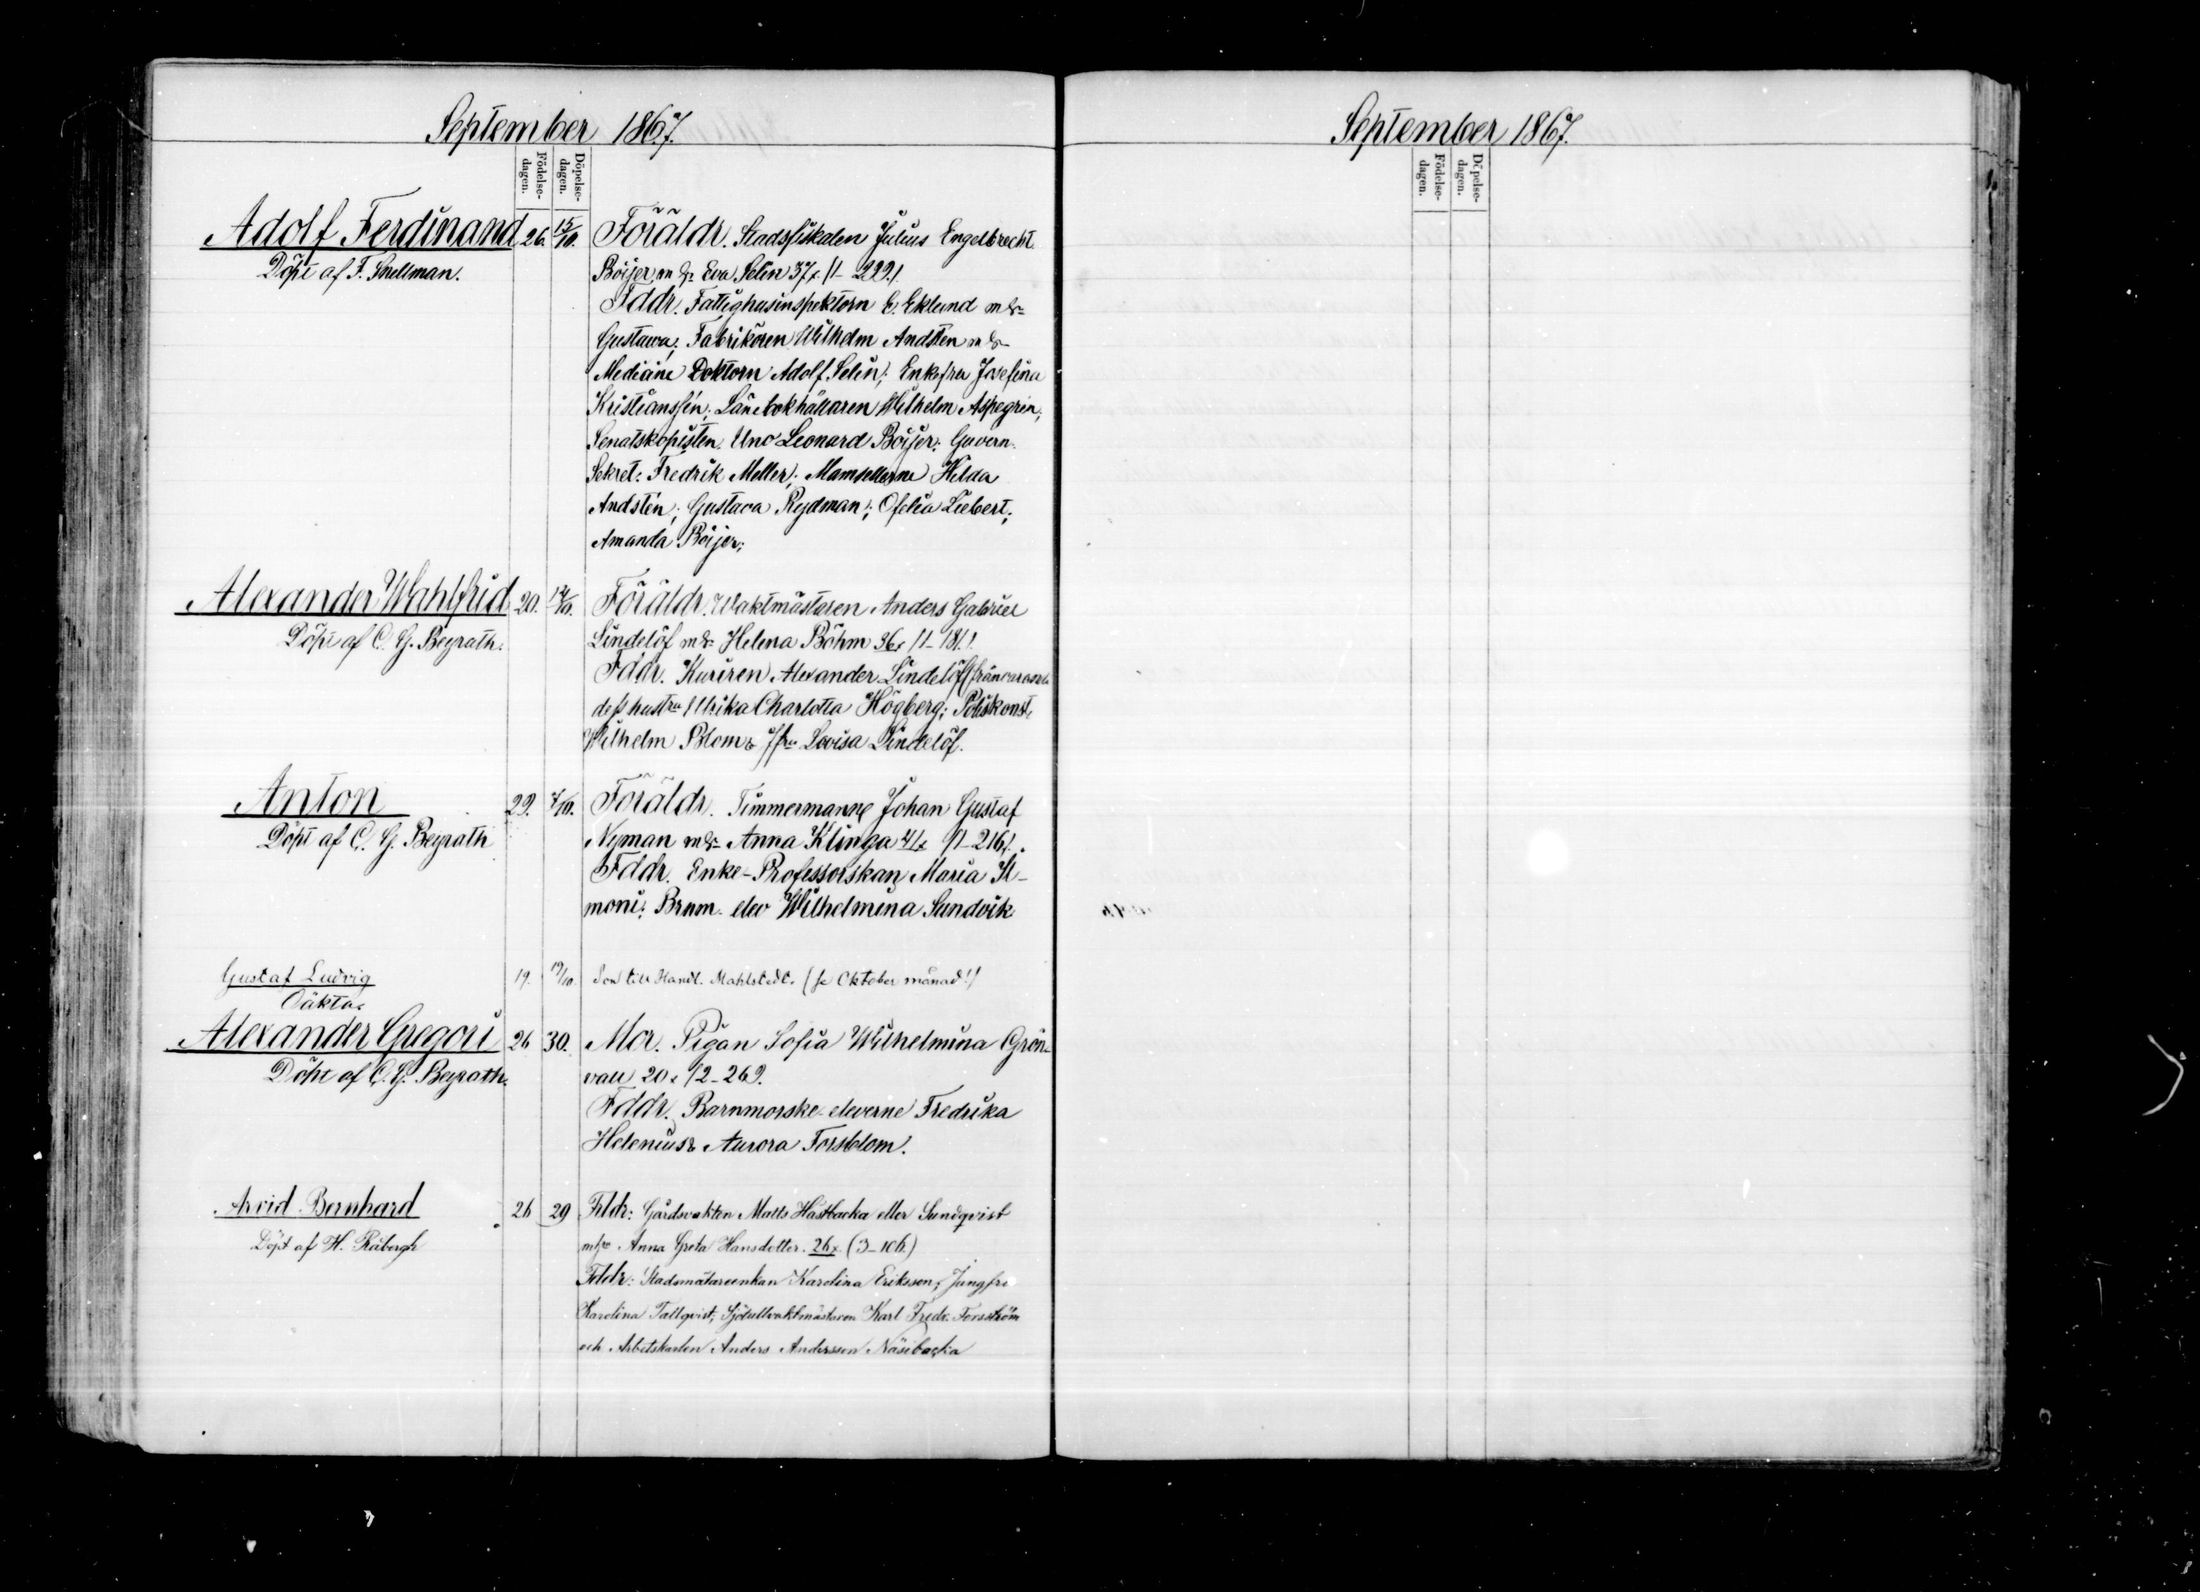 September 1867.
Födelse-
dagen.
Döpelse-
dagen.
Adolf Ferdinand 26. 15/10. Föräldr. Stadsfiskalen Julius Engelbrecht
Döpt af F. Snellman. Böijer m h. Eva Selin 37. (1-222.)
Fddr. Fattighusinspektorn E. Eklund m h.
Gustava; Fabrikören Wilhelm Andstén m h.
Medicine Doktorn Adolf Selin; Enkefru Josefina
Kristianssén; Länebokhållaren Wilhelm Aspegrén;
Senatskopisten Uno Leonard Böijer; Guvern.
Sekret: Fredrik Meller; Mamsellerne Hilda
Andstén; Gustava Rydman; Ofelia Liebert;
Amanda Böijer;
Alexander Wahlfrid 20. 14/10. Föräldr. Waktmästaren Anders Gabriel
Döpt af C. G. Beyrath. Lindelöf m h. Helena Böhm 36. (1-181.)
Fddr. Kuriren Alexander Lindelöf (frånvarande
dess hustru Ulrika Charlotta Högberg; Poliskonst.
Wilhelm Blom & Jfru Lovisa Lindelöf.
Anton 29. 7/10. Föräldr. Timmermanne Johan Gustaf
Döpt af C. G. Beyrath Nyman m h. Anna Klinga 41. (1-216).
Fddr. Enke-Professorskan Maria Si-
moni; Brnm. elev Wilhelmina Sundvik
Gustaf Ludvig 19. 19/10. Son till Handl. Mahlstedt. (se Oktober månad!)
Oäkta.
Alexander Gregori 26 30. Mor. Pigan Sofia Wilhelmina Grön-
Döpt af C. G. Beyrath. vall 20. (2-269.
Fddr. Barnmorske-eleverne Fredrika
Helenius & Aurora Forsblom.
Arvid Bernhard 26 29 Frldr: Gårdsvakten Matts Hästbacka eller Sundqvist
Döpt af H. Råbergh m h. Anna Greta Hansdotter. 26. (3-106.)
Fddr: Stadsmätareenkan Karolina Eriksson; Jungfru
Karolina Tallqvist, Sjötullvaktmästaren Karl Fredr. Forsström
och Arbetskarlen Anders Andersson Näsibacka
September 1867.
Födelse-
dagen.
Döpelse-
dagen.